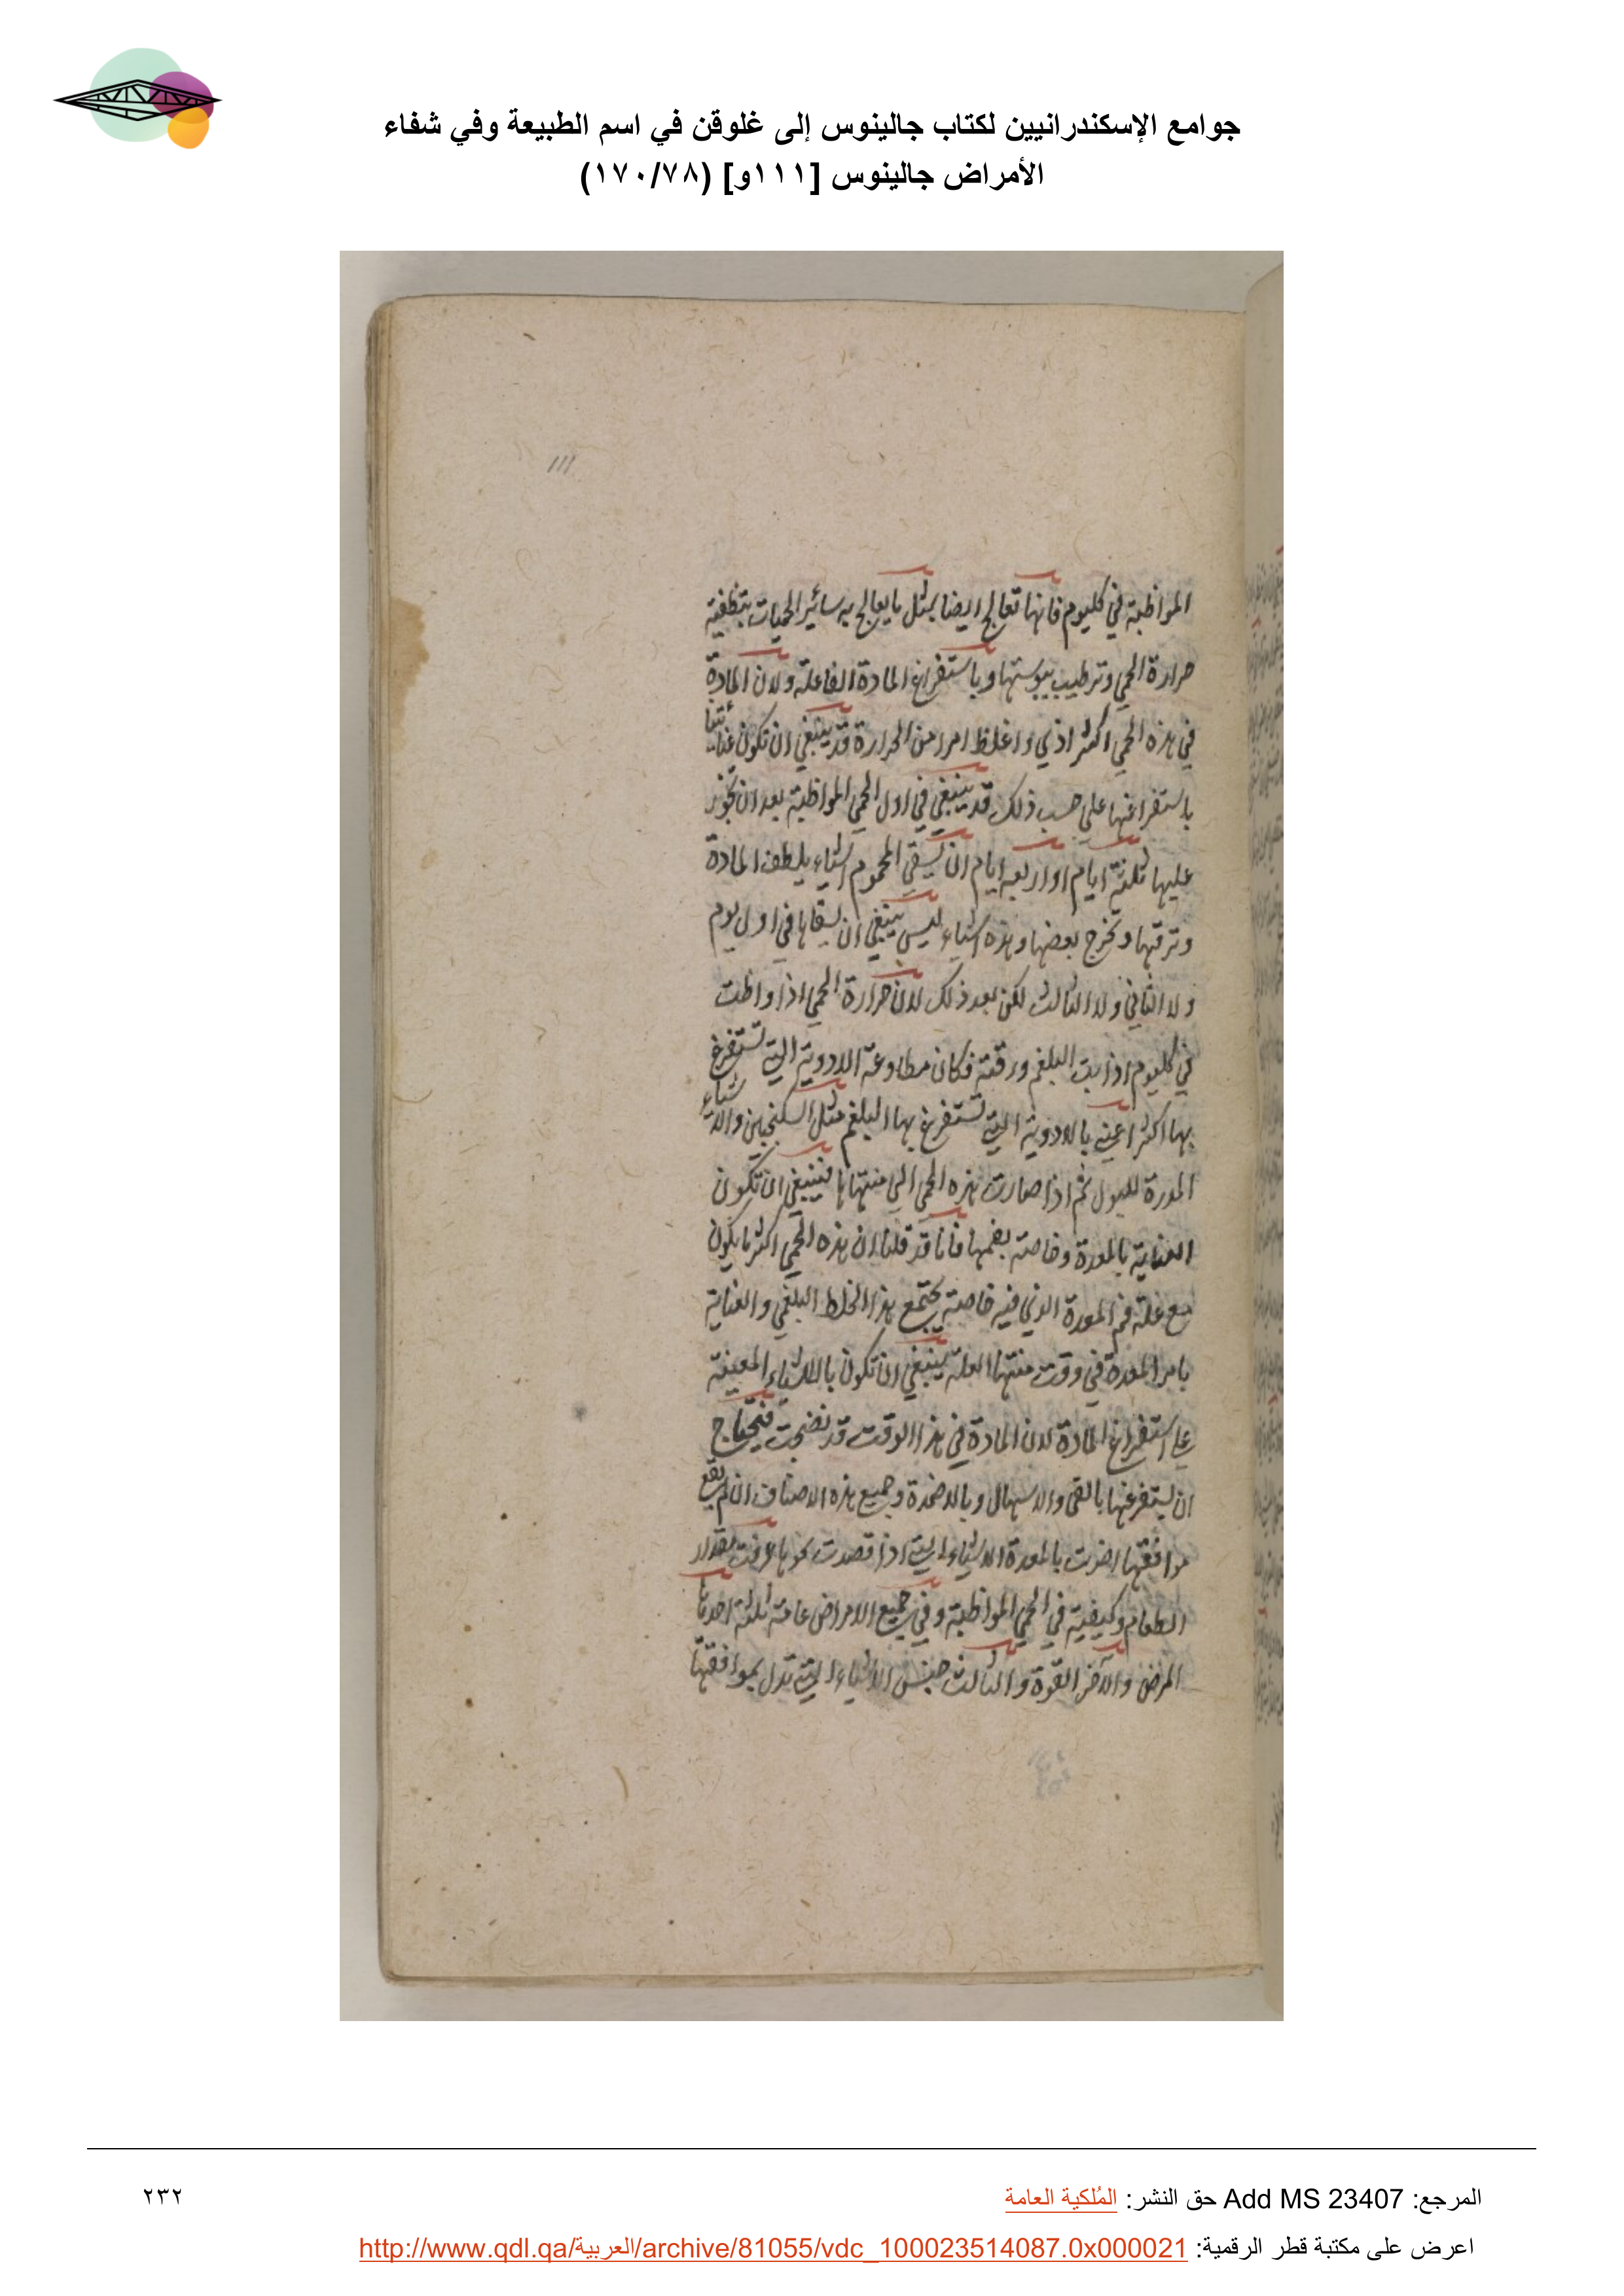 جوامع الإسكندرانيين لكتاب جالينوس إلى غلوقن في اسم الطبيعة وفي شفاء
الأمراض جالينوس [١١١و] (١٧٠/٧٨)
111
المواظبة في كليوم فانها تعالج ايضا بمثل ما يعالج به سائر الحميات بتطفية
حرارة الحمي وترطيب يبوستها وباستفراغ المادة الفاعلة ولان المادة
في هذه الحمي اكثر اذي واغلظ امرا من الحرارة قد ينبغي ان تكون عنايتنا
باستفراغها علي حسب ذلك قد ينبغي في اول الحمي المواظبة بعد ان تجوز
عليها ثلثة ايام او اربعه ايام ان يسقي المحموم اشياء يلطف المادة
وترقها وتخرج بعضها وهذه اشياء ليس ينبغي ان يسقاها في اول يوم
ولا الثاني ولا الثالث لكن بعد ذلك لان حرارة الحمي اذا واظبت
في كليوم اذابت البلغم ورقته فكان مطاوعة الادوية التي تستفرغ
بها اكثر اعني بالادوية التي تستفرغ بها البلغم مثل السكنجبين والاشياء
المدرة للبول ثم اذا صارت هذه الحمي الي منتهاها فينبغي ان تكون
العناية بالمعدة وخاصة بفمها فانا قد قلنا ان هذه الحمي اكثر ما يكون
مع علة فم المعدة الذي فيه خاصة يجتمع هذا الخلط البلغمي والعناية
بامر المعدة في وقت منتها العلة ينبغي ان تكون بالاشياء المعينة
علي استفراغ المادة لان المادة في هذا الوقت قد نضجت فيحتاج
ان يستفرغها بالقي والاسهال وبالاضمدة وجميع هذه الاصناف ان لم يقع
موافقتها اضرت بالمعدة الاشياء التي اذا قصدت نحوها عرفت مقدار
الطعام وكيفيته في الحمي المواظبة وفي جميع الامراض عامة ثلثة احدها
المرض والآخر القوة والثالث جنس الاشياء التي تدل بموافقتها
المرجع: Add MS 23407 حق النشر: المُلكية العامة
٢٣٢
اعرض على مكتبة قطر الرقمية: http://www.qdl.qa/العربية/archive/81055/vdc_100023514087.0x000021